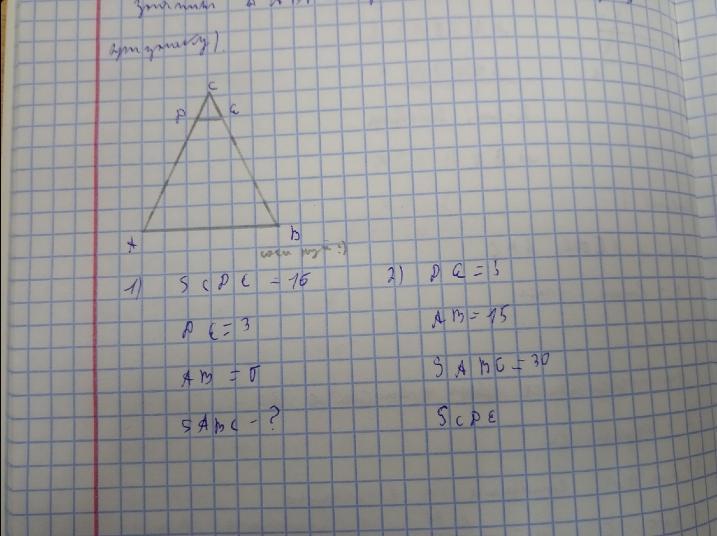 C
D E
A B
1) S CDE = 16
DE = 3
AB = 5
S ABC - ?
2) DE = 3
AB = 15
S ABC = 30
S CDE